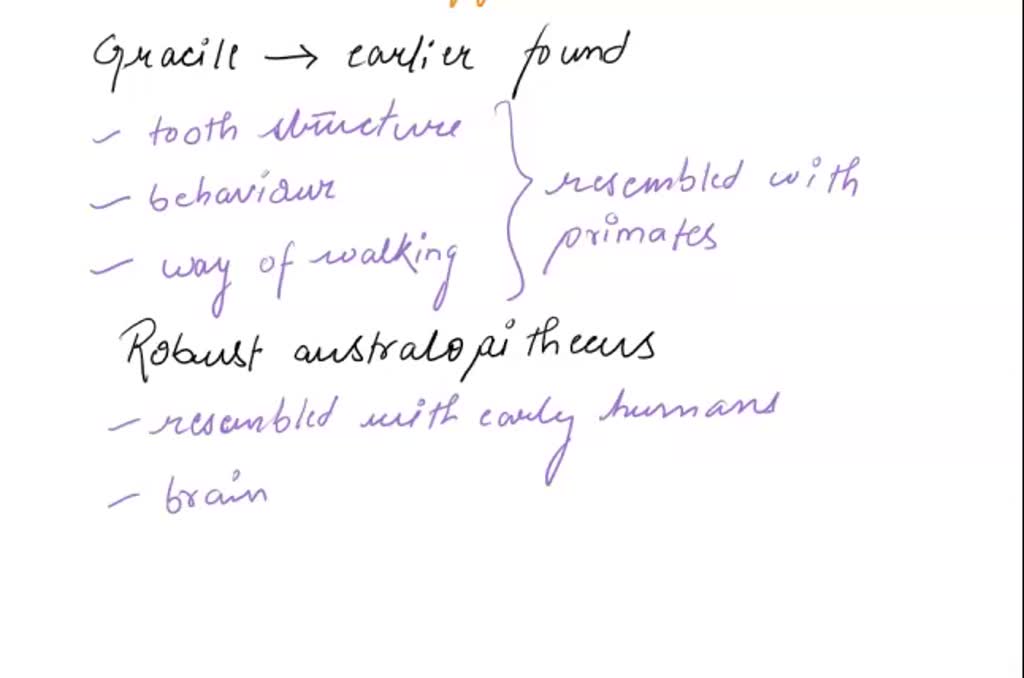 Gracill → earlier found
- tooth structure
- behaviour
- way of walking
resembled with
primates
Robust australopitheus
- resembled with early humans
- brain